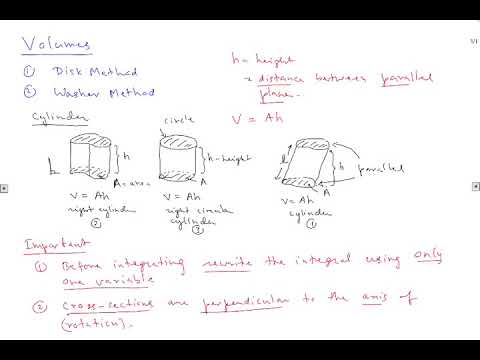 Volumes
① Disk Method
② Washer Method
h = height
= distance between parallel
planes.
V = Ah
Cylinder
circle
h
A = area
V = Ah
right cylinder
②
h - height
A
V = Ah
right circular
cylinder
③
l
h
parallel
A
V = Ah
cylinder
①
Important
① Before integrating rewrite the integral using only
one variable
② Cross-sections are perpendicular to the axis of
(rotation).